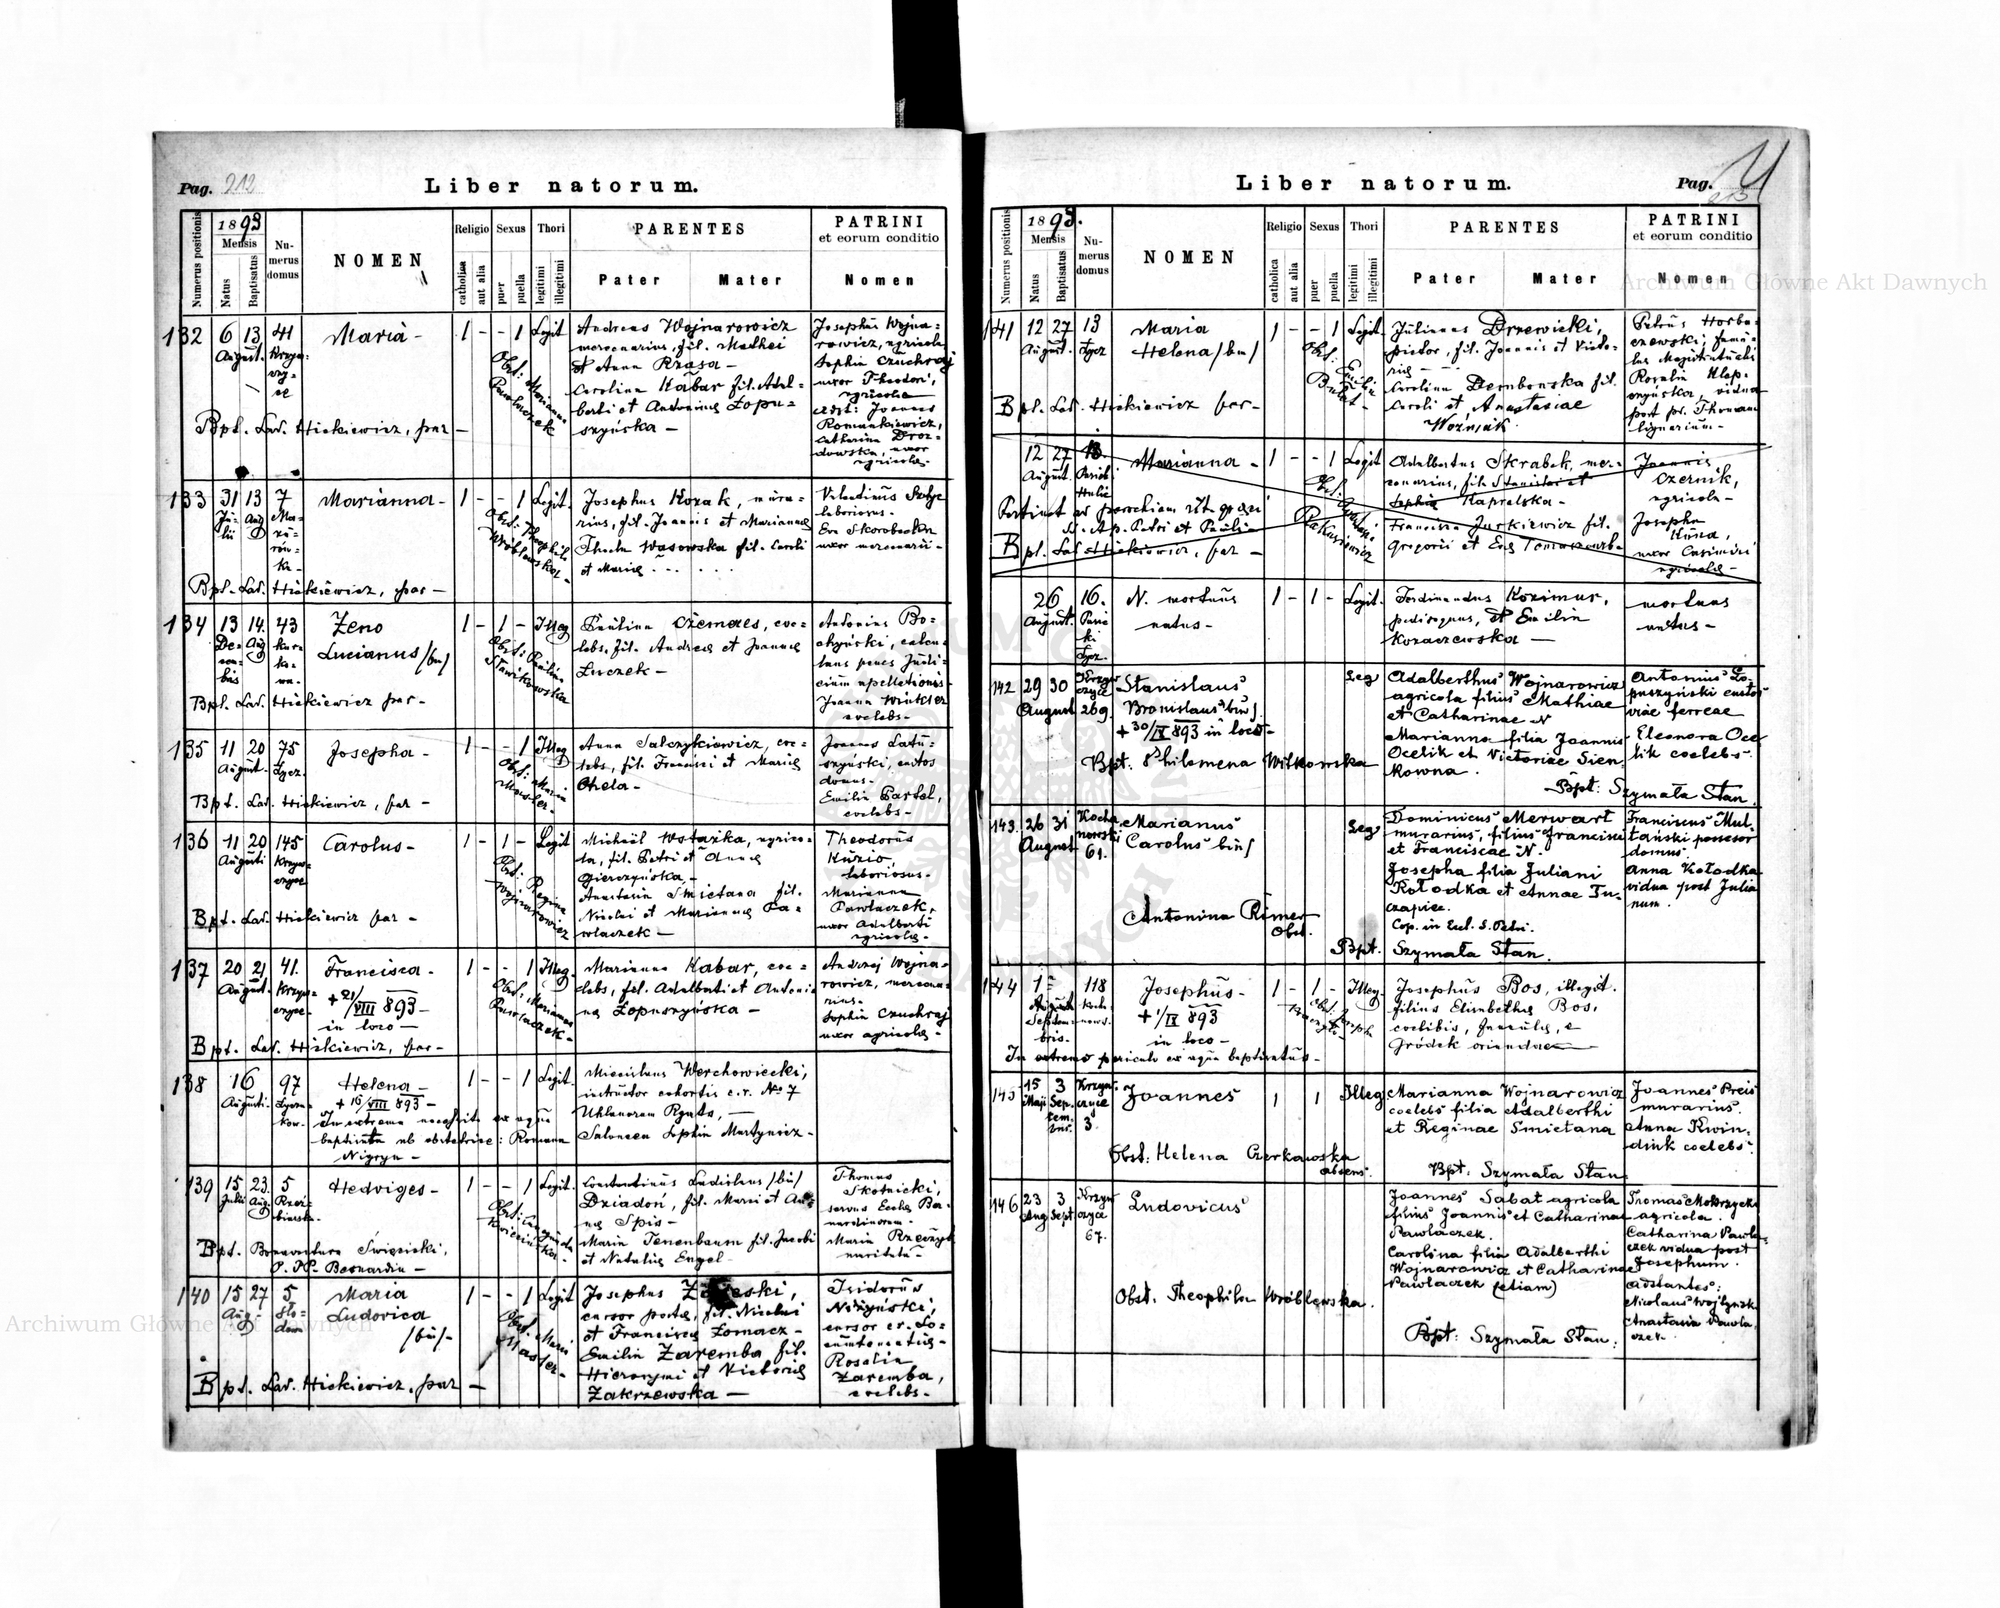 Pag. 212
Liber natorum.
Numerus positionis
1893
Mensis
Natus
Baptisatus
Numerus domus
NOMEN
Religio
catholica
aut alia
Sexus
puer
puella
Thori
legitimi
illegitimi
PARENTES
Pater
Mater
PATRINI
et eorum conditio
Nomen
132
6 13 41
August.
Maria -
1 - - 1 Legit
Andreas Wojnarowicz
mercenarius, fil. Mathei
et Anna Rząsa -
Carolina Kabar fil. Adal=
berti et Antonina Łopu=
szyńska -
Josephus Wojna=
rowicz, agricola
Sophia Czuchraj
uxor Theodori,
agricola
adst: Joannes
Romankiewicz,
Catharina Droz=
dowska, uxor
agricolae -
Obst: Marianna
Pawlaczek
Bpt. Lad. Hickiewicz, par -
133
31 13 7
Ju=
lii
Aug
Ma=
zu=
rów=
ka -
Marianna -
1 - - 1 Legit.
Josephus Kozak, mura=
rius, fil. Joannis et Mariannae
Thecla Wąsowska fil. Caroli
et Mariae
laboriosus -
uxor mercenarii -
Obst: Theophila
Wróblewska -
Bpt. Lad. Hickiewicz, par -
134
13 14. 43
Aug
Zeno
Lucianus /bin/
1 - 1 - Illeg
Paulina Czemeres, coe=
lebs, fil. Andreae et Joanna
Łuczek -
Antonius Bo=
chyński, calcu=
lans penes Judi=
cium apellationis -
Joanna Winkler
coelebs -
Obst: Paulina
Sławikowska
Bpt. Lad. Hickiewicz par -
135
11 20 75
August. Łycz.
Josepha -
1 - - 1 Illeg
Anna Salczykiewicz, coe=
lebs, fil. Francisci et Mariae
Chela -
Joannes Latu=
szyński, custos
domus -
Emilia Bartel,
coelebs -
Obst: Maria
Bpt. Lad. Hickiewicz, par -
136
11 20 145
Augusti
Carolus -
1 - 1 - Legit
Michaël Wstażka, agrico=
la, fil. Petri et Anna
Gierczyńska -
Anastasia Smietana fil.
Nicolai et Marianna Pa=
wlaczek -
Theodorus
Kuzio,
laboriosus -
Marianna
Pawlaczek,
uxor Adalberti
agricolae -
Obst: Regina
Wojnarowicz
Bpt. Lad. Hickiewicz par -
137
20 21 41.
August.
Francisca -
+ 21/VIII 893 -
in loco -
1 - - 1 Illeg.
Marianna Kabar, coe=
lebs, fil. Adalberti et Antoni=
na Łopuszyńska -
Andrzej Wojna=
rowicz, mercena=
rius -
Sophia Czuchraj
uxor agricolae -
Obst: Marianna
Pawlaczek -
Bpt. Lad. Hickiewicz, par -
138
16 97
Augusti.
Helena -
+ 16/VIII 893 -
In extrema necessitate ex aqua
baptisata ab obstetrice: Romana
Nigryn -
1 - - 1 Legit.
Miecislaus Werchowiecki,
instructor cohortis c.r. No 7
Uhlanorum
Salomea Sophia Martynicz -
139
15 23. 5
Julii Aug.
Hedviges -
1 - - 1 Legit.
Constantinus Ladislaus /bin/
Dziadoń, fil. Marci et An=
na Spis -
Maria Tenenbaum fil. Jacobi
et Natalia Engel -
Thomas
Skotnicki,
servus Eccles. Ber=
nardinorum -
Obst: Cunegunda
Kwiecińska
Bpt. Bonaventura
P. P. Bernardin -
140
15 27 5
Aug.
Maria
Ludovica
/bin/ -
1 - - 1 Legit
Josephus
cursor postae, fil. Nicolai
et Francisca Łomacz -
Emilia Zaremba fil.
Hieronymi et Victoria
Zakrzewska -
Isidorus
Rosalia
Zaremba,
coelebs -
Obst. Maria
Bpt. Lad. Hickiewicz, par -
Liber natorum.
Pag.
Numerus positionis
1893.
Mensis
Natus
Baptisatus
Numerus domus
NOMEN
Religio
catholica
aut alia
Sexus
puer
puella
Thori
legitimi
illegitimi
PARENTES
Pater
Mater
PATRINI
et eorum conditio
Nomen
141
12 27 13
August. Łycz
Maria
Helena /bin/
1 - - 1 Legit.
Julianus Drzewicki,
pictor, fil. Joannis et Victo=
ria -
Carolina Dembowska fil.
Caroli et Anastasiae
Woźniak.
Petrus Horba=
czewski, famu=
lus Magistratualis
Rosalia Klep=
czyńska, vidua
post p. Thomam
lignarium -
Obst: Emilia
Bpt. Lad. Hickiewicz par -
12 27 13.
August.
Marianna -
1 - - 1 Legit
Adalbertus Skrabek, mer=
cenarius, fil. Stanislai et
Sophia Kapralska -
Francisca Jurkiewicz fil.
Gregorii et Eva
Joannis
Czernik,
agricola -
Josepha
uxor Casimiri
agricolae -
Pertinet ad parochiam rit. gr. ad
SS. Ap. Petri et Pauli -
Bpt. Lad Hickiewicz, par -
26 16.
August.
N. mortuus
natus -
1 - 1 - Legit.
Ferdinandus Kozimur,
pedisequus, et Emilia
Kozaczewska -
mortuus
natus -
142
29 30
August 269
Stanislaus
Bronislaus bin/
+ 30/IX 893 in loco -
Leg
Adalberthus Wojnarowicz
agricola filius Mathiae
et Catharinae N
Marianna filia Joannis
Ocelik et Victoriae Sien=
kowna.
Antonius Ło=
puszyński custos
viae ferreae
Eleonora Oce=
lik coelebs.
Bpt: Philomena Witkowska
Bpt: Szymała Stan.
143.
26 31
August
Kocha
nowski
61.
Marianus
Carolus bin/
Leg
Dominicus Merwart
murarius, filius Francisci
et Franciscae N.
Josepha filia Juliani
Kołodka et Annae Tu=
czapiec.
Cop. in Eccl. S. Petri.
Franciscus Mul=
tański possesor
domus.
Anna Kołodka
vidua post Julia
num.
Antonina Römer
Obst.
Bpt. Szymała Stan.
144
1 118
Augusti
Septem=
bris.
Josephus -
+ 1/IX 893
in loco -
1 - 1 - Illeg.
Josephus Bos, illegit.
filius Elisabethae Bos,
coelibis, famulae, e
Gródek oriundae
In extremo periculo ex aqua baptisatus -
145
15 3
Maji Sep.
tem
bris.
Krzyw
czyce
3
Joannes
1 1 Illeg
Marianna Wojnarowicz
coelebs filia Adalberthi
et Reginae Smietana
Joannes Preis
murarius.
Anna Kwin.
dink coelebs.
Obst: Helena Czerkawska
absens.
Bpt: Szymała Stan
146
23 3
Aug Sept.
Krzyw
czyce
67.
Ludovicus
Joannes Sabat agricola
filius Joannis et Catharinae
Pawlaczek.
Carolina filia Adalberthi
Wojnarowicz et Catharinae
Pawlaczek (etiam)
Thomas Mokrzycki
agricola.
Catharina Pawla=
czek vidua post
Josephum.
Adstantes:
Anastasia Pawla
czek.
Obst. Theophila Wróblewska.
Bpt: Szymała Stan.
Archiwum Główne Akt Dawnych
Archiwum Główne Akt Dawnych